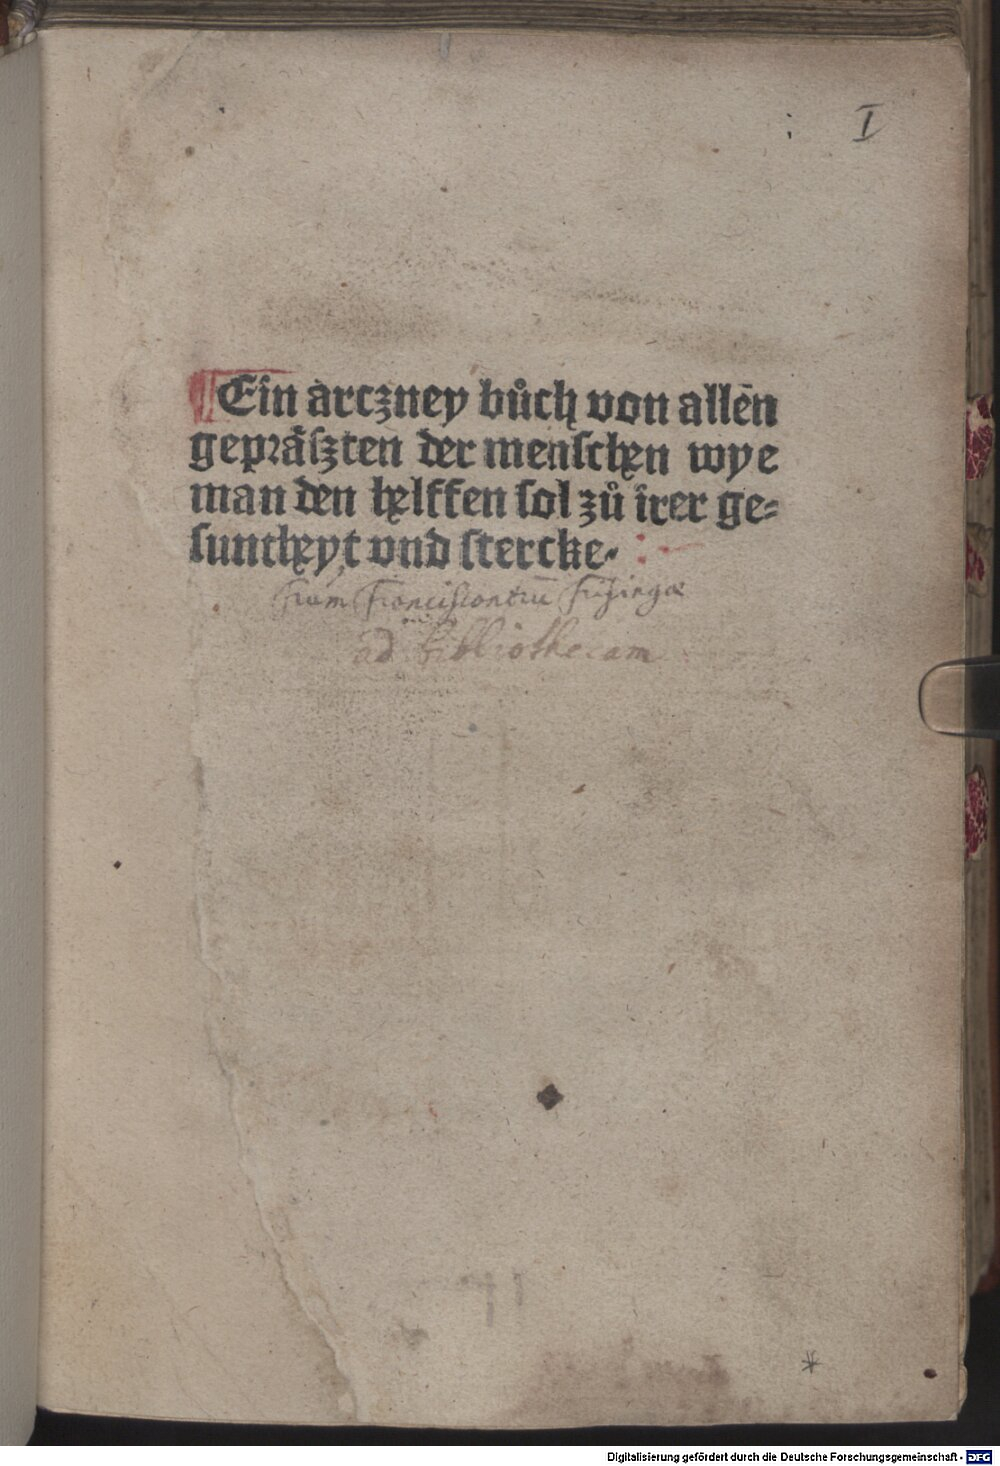 I
Ein arczney bůch von allen
gepräſzten der menſchen wye
man den helffen ſol zů irer ge⸗
ſuntheyt vnd ſtercke.
Franciſcantiū Friſingæ
ad bibliothecam
Digitalisierung gefördert durch die Deutsche Forschungsgemeinschaft - DFG